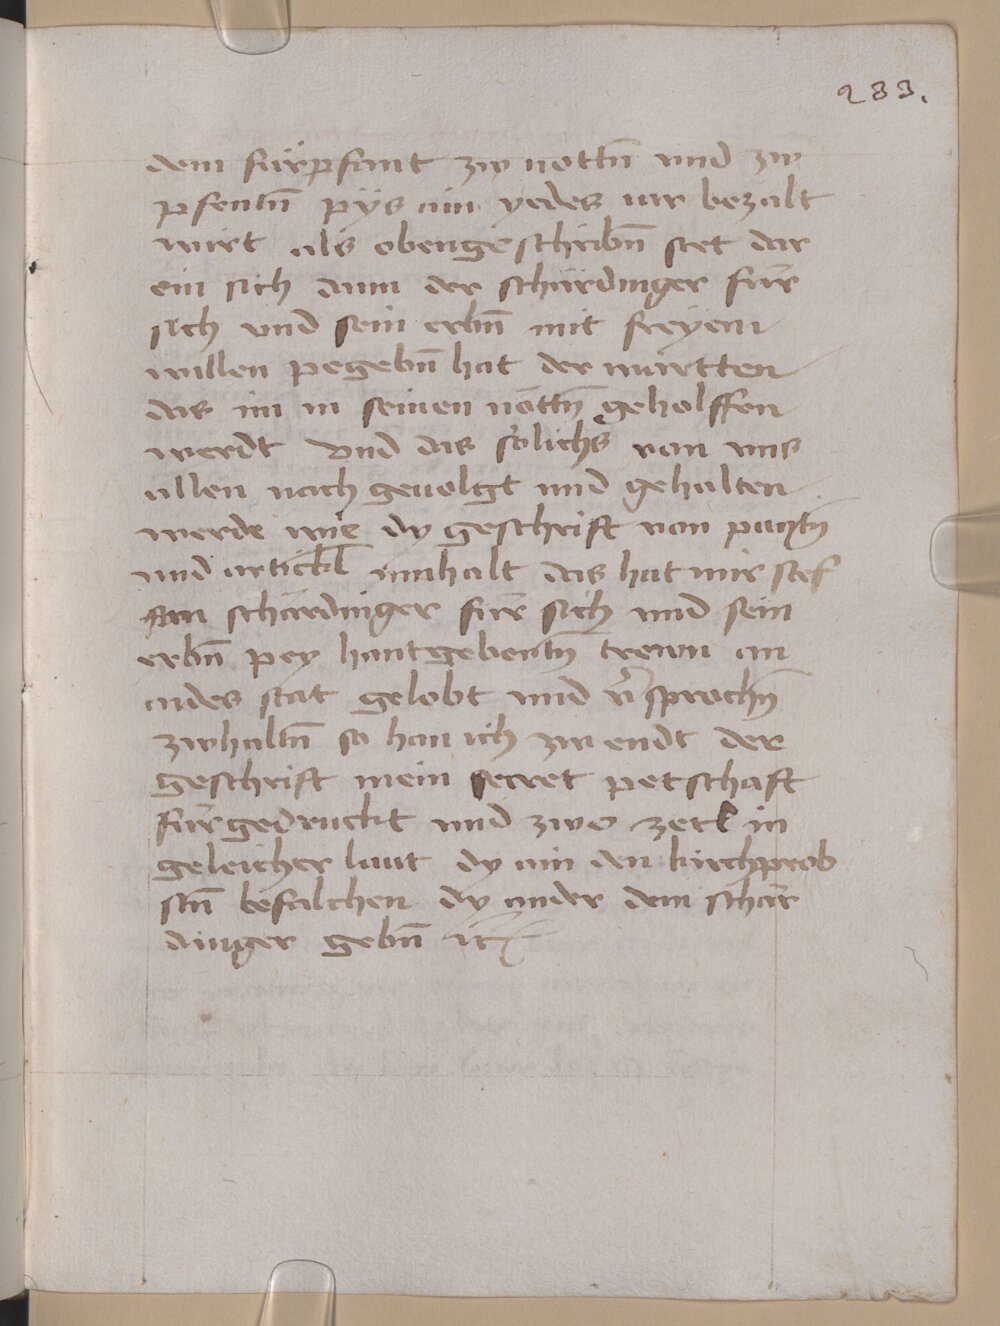 283.
dem fürpfant zw nottn̄ vnd zw
pfentn̄ pÿs ain yedes iar bezalt
wirt als obengeschribn̄ stet dar
ein sich dann der schärdinger für
sich vnd sein erbn̄ mit freyem
willen pegebn̄ hat der wartten
das im in seinen nöttn̄ geholffen
werdt vnd das sölichs van vns
allen nach geuolgt vnd gehalten
werde wie dy geschrift van
vnd artickl innhalt das hat mir stef
fan schärdinger für sich vnd sein
erbn̄ pey hantgebentn̄ trewn an
aides stat gelobt vnd v̄sprochn̄
zwhaltn̄ so han ich zw endt der
geschrift mein secret petschaft
fürgedruckt vnd zwo zetl in
geleicher laut dy ain den kirchprob
stn̄ befalchen dy ander dem schär
dinger gebn̄ ꝛc